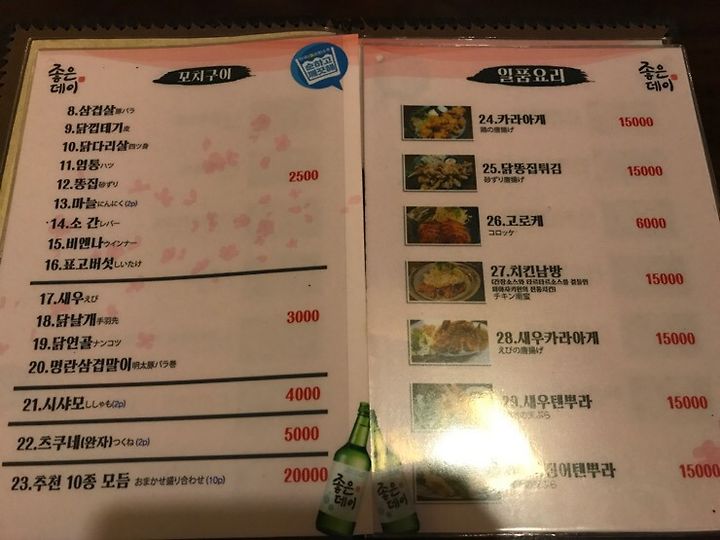 좋은
데이
꼬치구이
순하고
깨끗해
8.삼겹살豚バラ
9.닭껍데기皮
10.닭다리살四ツ身
11.염통ハツ
12.똥집砂ずり
13.마늘にんにく(2p)
14.소 간レバー
15.비엔나ウインナー
16.표고버섯しいたけ
2500
17.새우えび
18.닭날개手羽先
19.닭연골ナンコツ
20.명란삼겹말이明太豚バラ巻
3000
21.시샤모ししゃも(2p)
4000
22.츠쿠네(완자)つくね(2p)
5000
23.추천 10종 모듬 おまかせ盛り合わせ(10p)
20000
좋은
데이
일품요리
좋은
데이
24.카라아게
鶏の唐揚げ
15000
25.닭똥집튀김
砂ずり唐揚げ
15000
26.고로케
コロッケ
6000
27.치킨남방
(간장소스와 타르타르소스를 곁들인
미야자키현의 전통치킨)
チキン南蛮
15000
28.새우카라아게
えびの唐揚げ
15000
29.새우텐뿌라
天ぷら
15000
징어텐뿌라
ぷら
15000
좋은
데이